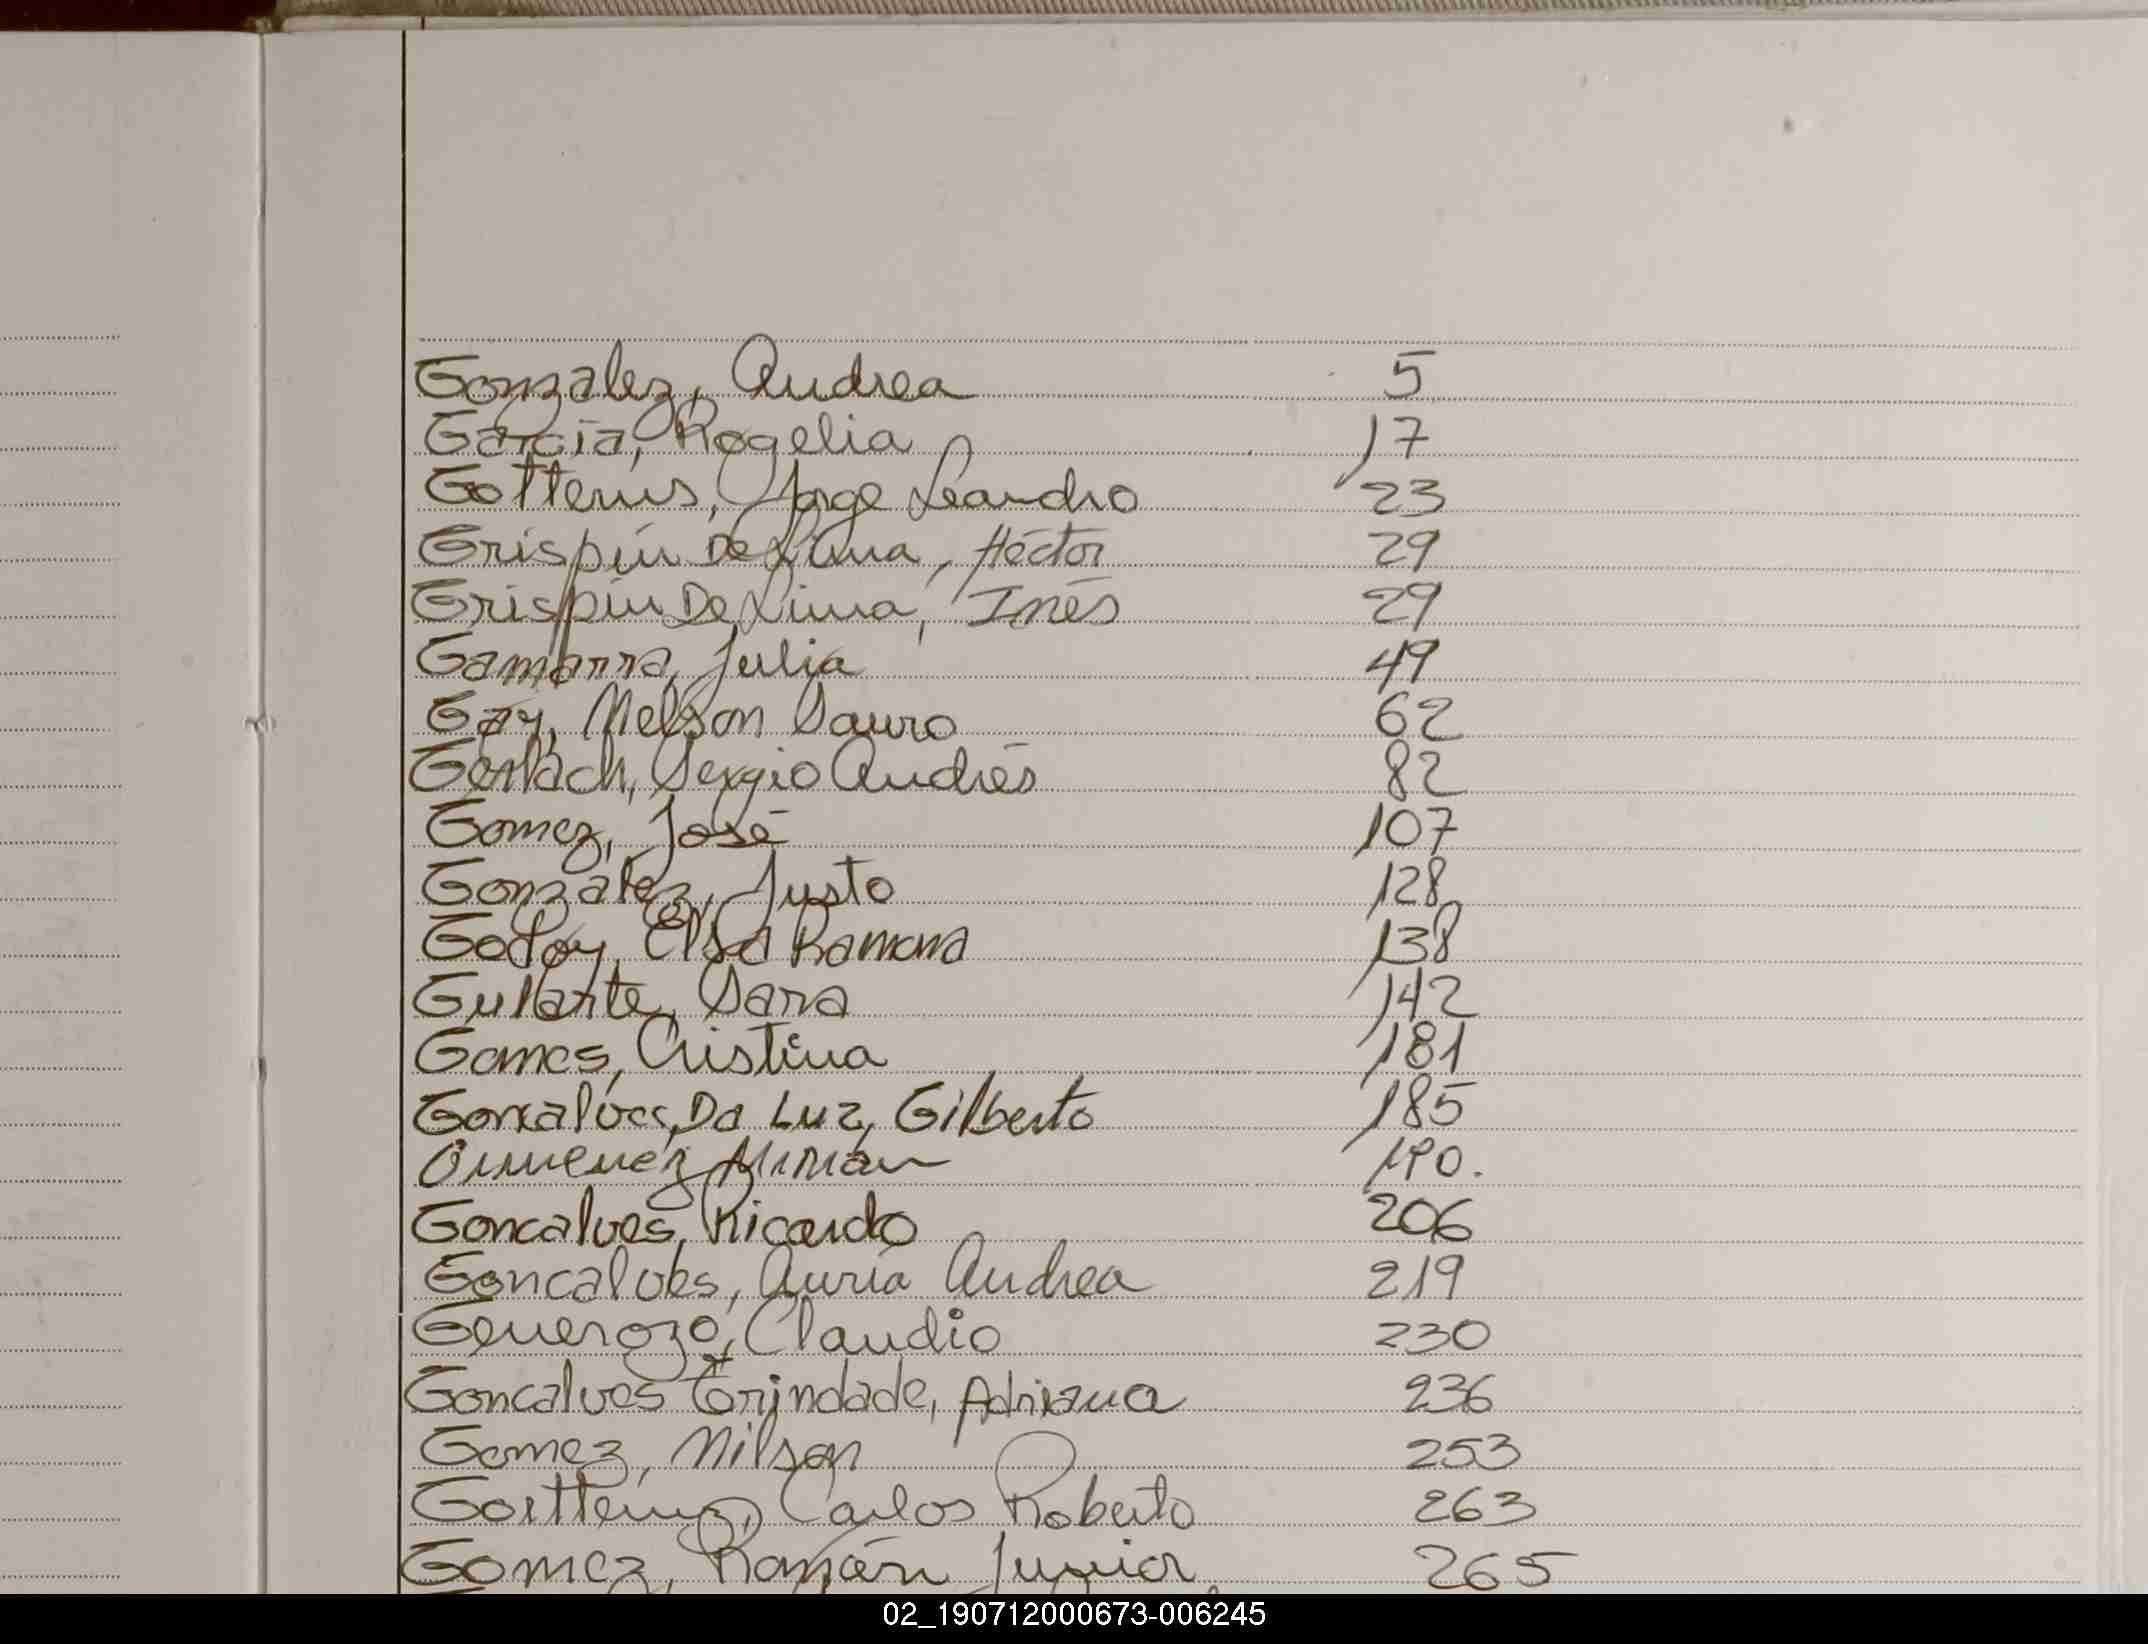 Gonzalez, Andrea 5
García, Rogelia 17
Gotterns, Jorge Leandro 23
Grispín De Lima, Héctor 29
Grispín De Lima, Inés 29
Gamarra, Julia 49
Gay, Nelson Sauro 62
Gerlach, Sergio Andrés 82
Gomez, José 107
Gonzalez, Justo 128
Godoy, Elsa Ramona 138
Gularte, Sara 142
Gomes, Cristina 181
Goncalves, Da Luz, Gilberto 185
Gimenez Mirian 190.
Goncalves, Ricardo 206
Goncalves, Auria Andrea 219
Generozo, Claudio 230
Goncalves Trindade, Adriana 236
Gomez, Nilson 253
Carlos Roberto 263
Gomez, Ramón Junior 265
02_190712000673-006245